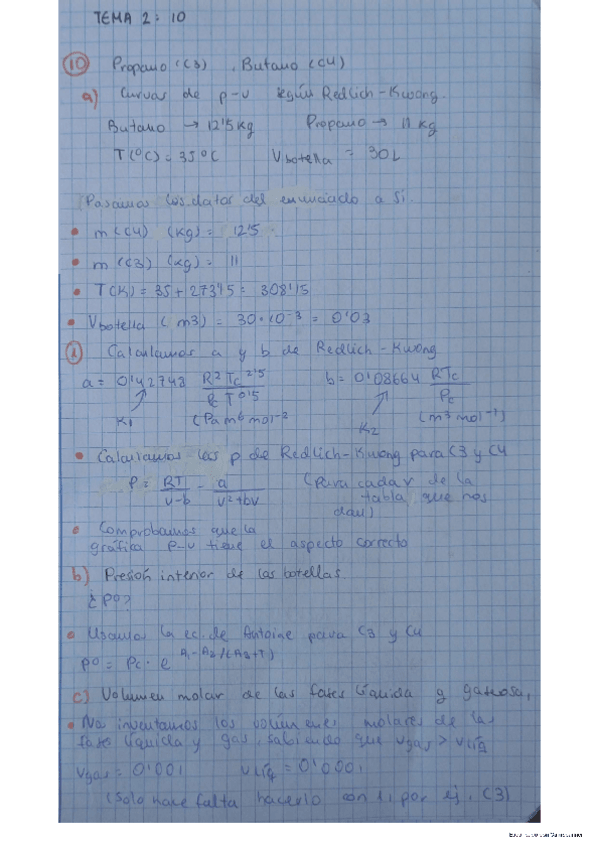 TEMA 2: 10
10 Propano (C3) , Butano (C4)
a) Curvas de p-v según Redlich-Kwong.
Butano → 12'5 kg Propano → 11 kg
T(ºC) = 35ºC Vbotella = 30L
Pasamos los datos del enunciado a SI.
• m(C4) (kg) = 12'5
• m(C3) (kg) = 11
• T(K) = 35 + 273'15 = 308'15
• Vbotella (m3) = 30·10⁻³ = 0'03
1 Calculamos a y b de Redlich-Kwong
a = 0'42748 R² Tc^2'5 / Pc T^0'5 b = 0'08664 RTc / Pc
K1 (Pa m⁶ mol⁻² K2 (m³ mol⁻¹)
• Calculamos las p de Redlich-Kwong para C3 y C4
P = RT / v-b - a / v²+bv (para cada v de la
tabla que nos
dan)
• Comprobamos que la
gráfica p-v tiene el aspecto correcto
b) Presión interior de las botellas.
¿Pº?
• Usamos la ec. de Antoine para C3 y C4
Pº = Pc · e^A1-A2/(A3+T)
c) Volumen molar de las fases líquida y gaseosa,
• Nos inventamos los volúmenes molares de las
fase líquida y gas, sabiendo que vgas > vliq
vgas = 0'001 vliq = 0'0001
(Solo hace falta hacerlo con 1, por ej. C3)